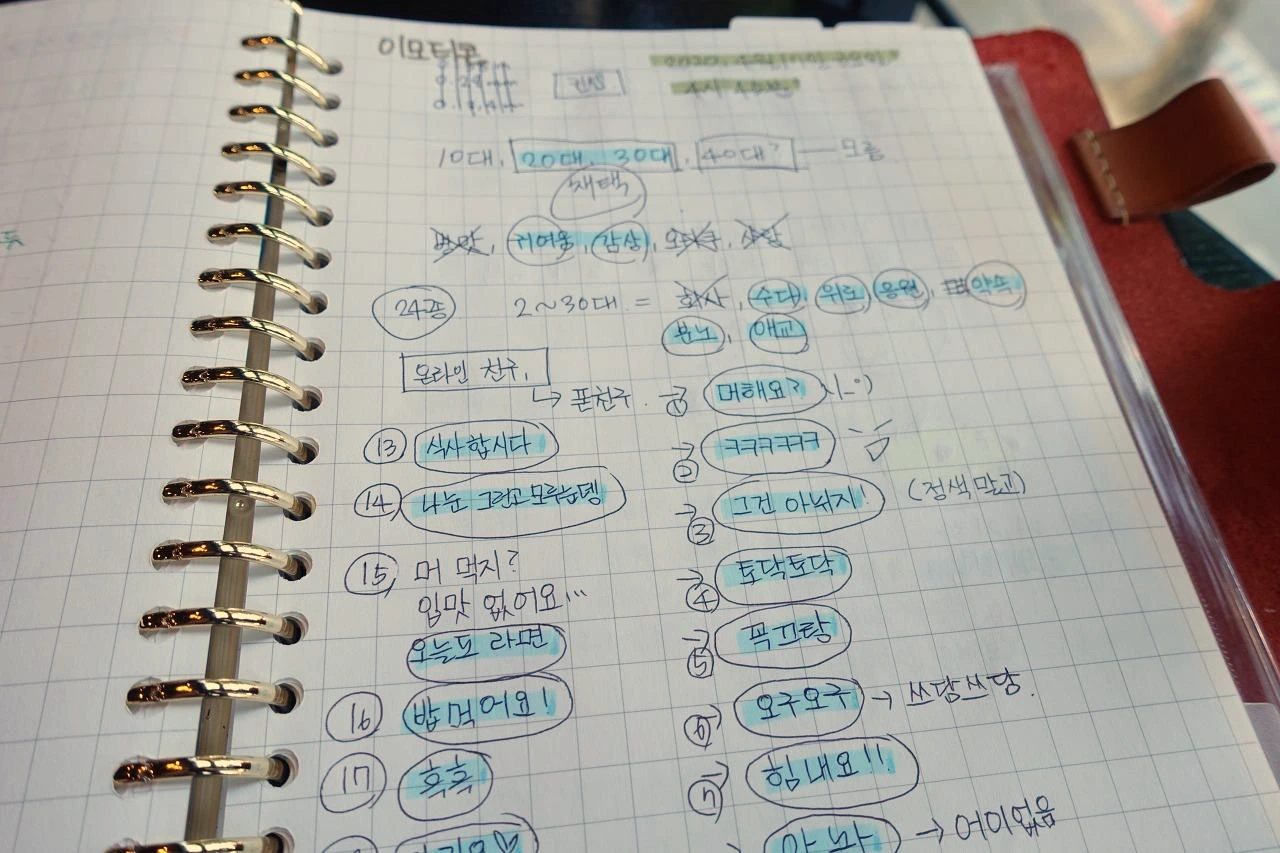 이모티콘
컨셉
10대, 20대, 30대, 40대? — 모름
채택
귀여움, 감상
24종
2~30대 = 회사, 수다, 위로, 응원, 약속
분노, 애교
온라인 친구,
↳ 폰친구. → ① 머해요?
⑬ 식사합시다
→ ② ㅋㅋㅋㅋㅋ
⑭ 나눈 그런고모루눈뎅
→ ③ 그건 아니지! (정색말고)
⑮ 머 먹지?
입맛 없어요...
오늘도 라면
→ ④ 토닥토닥
→ ⑤ 폭끄랑
⑯ 밥먹어요!
→ ⑥ 요구요구 → 쓰담쓰담.
⑰ 흑흑
→ ⑦ 힘내요!!
아놔 → 어이없음